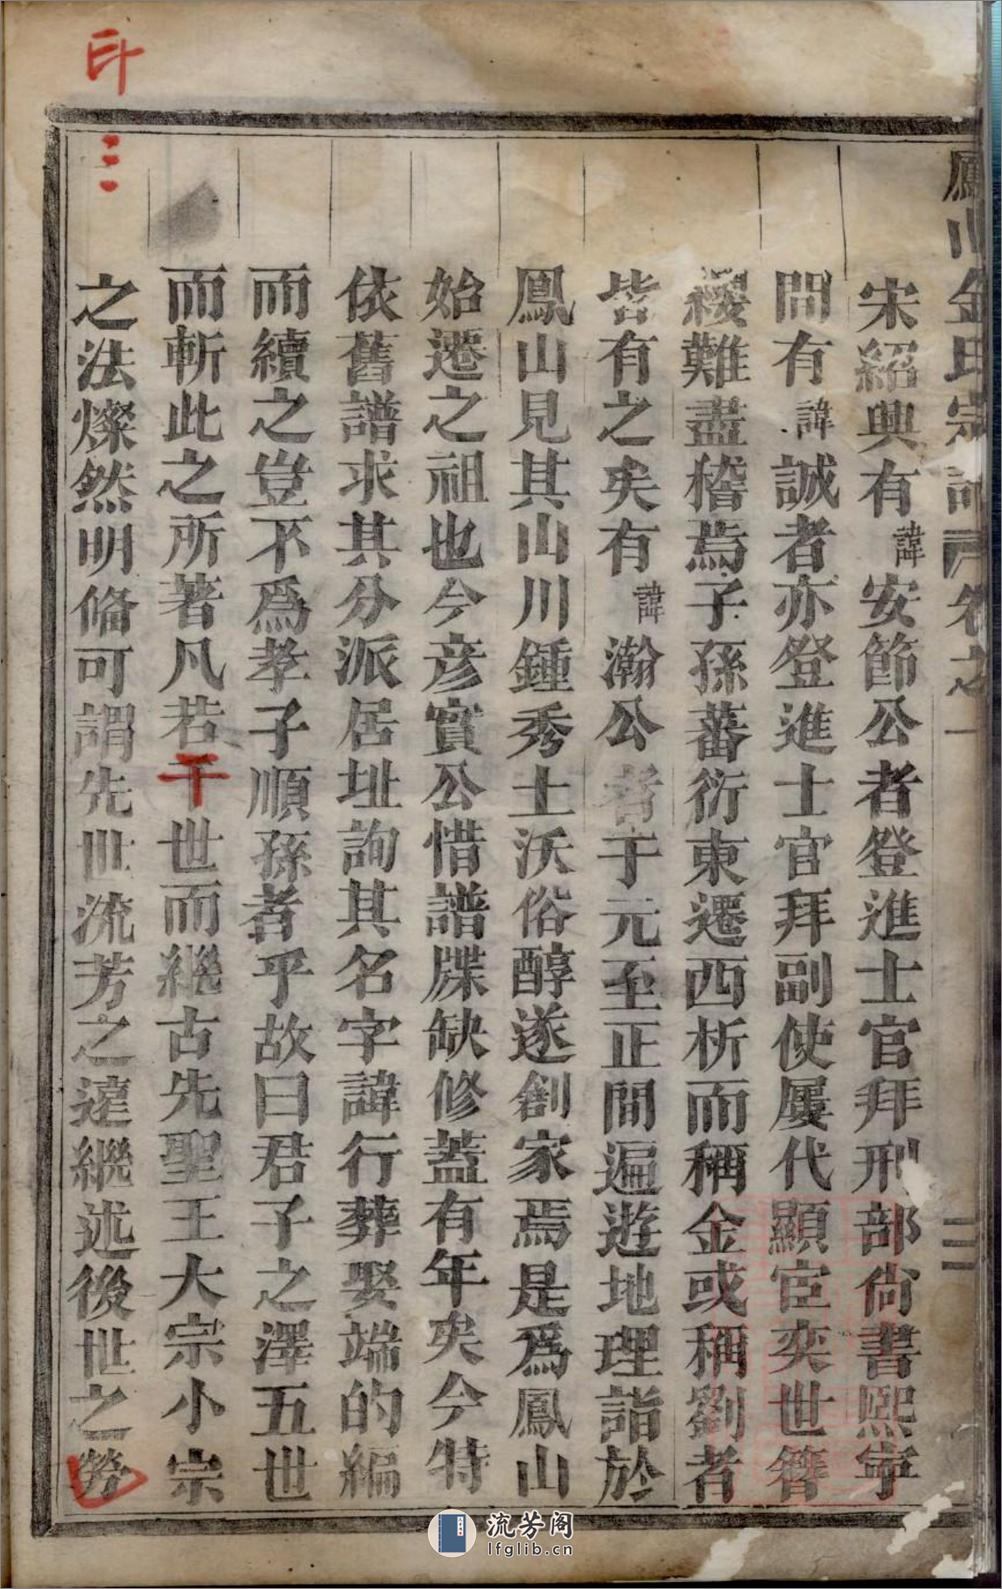 鳳山金氏宗譜 卷之一 二
宋紹興有諱安節公者登進士官拜刑部尙書熙寧
間有諱誠者亦登進士官拜副使屢代顯宦奕世簪
纓難盡稽焉子孫蕃衍東遷西析而稱金或稱劉者
皆有之矣有諱瀚公者于元至正間遍遊地理詣於
鳳山見其山川鍾秀土沃俗醇遂創家焉是爲鳳山
始遷之祖也今彦實公惜譜牒缺修蓋有年矣今特
依舊譜求其分派居址詢其名字諱行葬娶端的編
而續之豈不爲孝子順孫者乎故曰君子之澤五世
而斬此之所著凡若干世而繼古先聖王大宗小宗
之法燦然明俻可謂先世流芳之遠繼述後世之勞
印
三
流芳阁
lfglib.cn